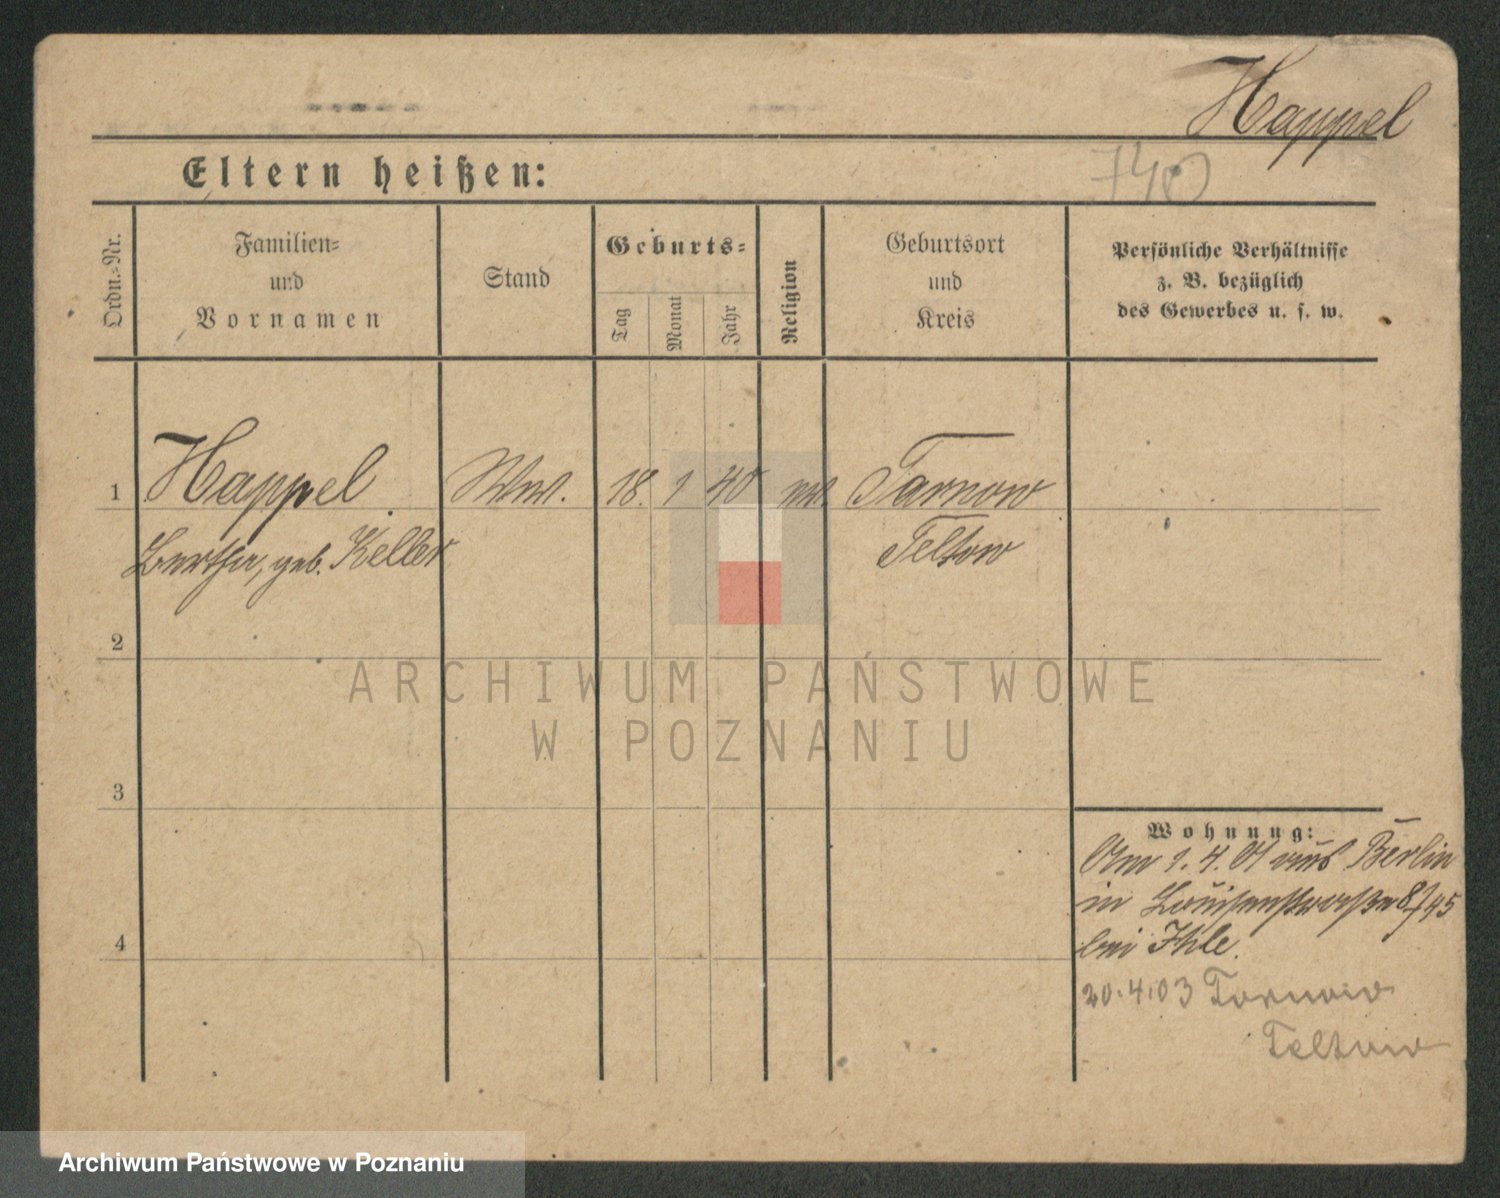 Happel
740
Eltern heißen:
Ordn.-Nr.
Familien- und Vornamen
Stand
Geburts-
Tag
Monat
Jahr
Religion
Geburtsort und Kreis
Persönliche Verhältnisse
z. B. bezüglich
des Gewerbes u. s. w.
1
Happel
Ww.
18.
1
40
ev.
Tarnow
Bertha, geb. Keller
Teltow
2
ARCHIWUM PAŃSTWOWE
W POZNANIU
3
Wohnung:
Am 1. 4. 01 aus Berlin
in Louisenstraße 8 / 45
bei Ihle.
4
20.4.03 Tornow
Teltow
Archiwum Państwowe w Poznaniu